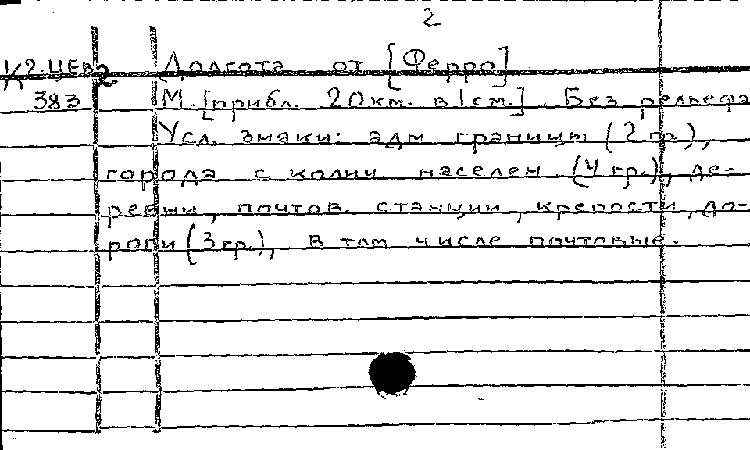 2
К2-ЦЕВ2 Долгота от [Ферро]
383 М. [прибл. 20км. в 1см.]. Без рельефа
Усл. знаки: адм границы (2 гр.),
города с колич населен (4 гр.), де-
ревни, почтов. станции, крепости, до-
роги (3 гр.), в том числе почтовые.